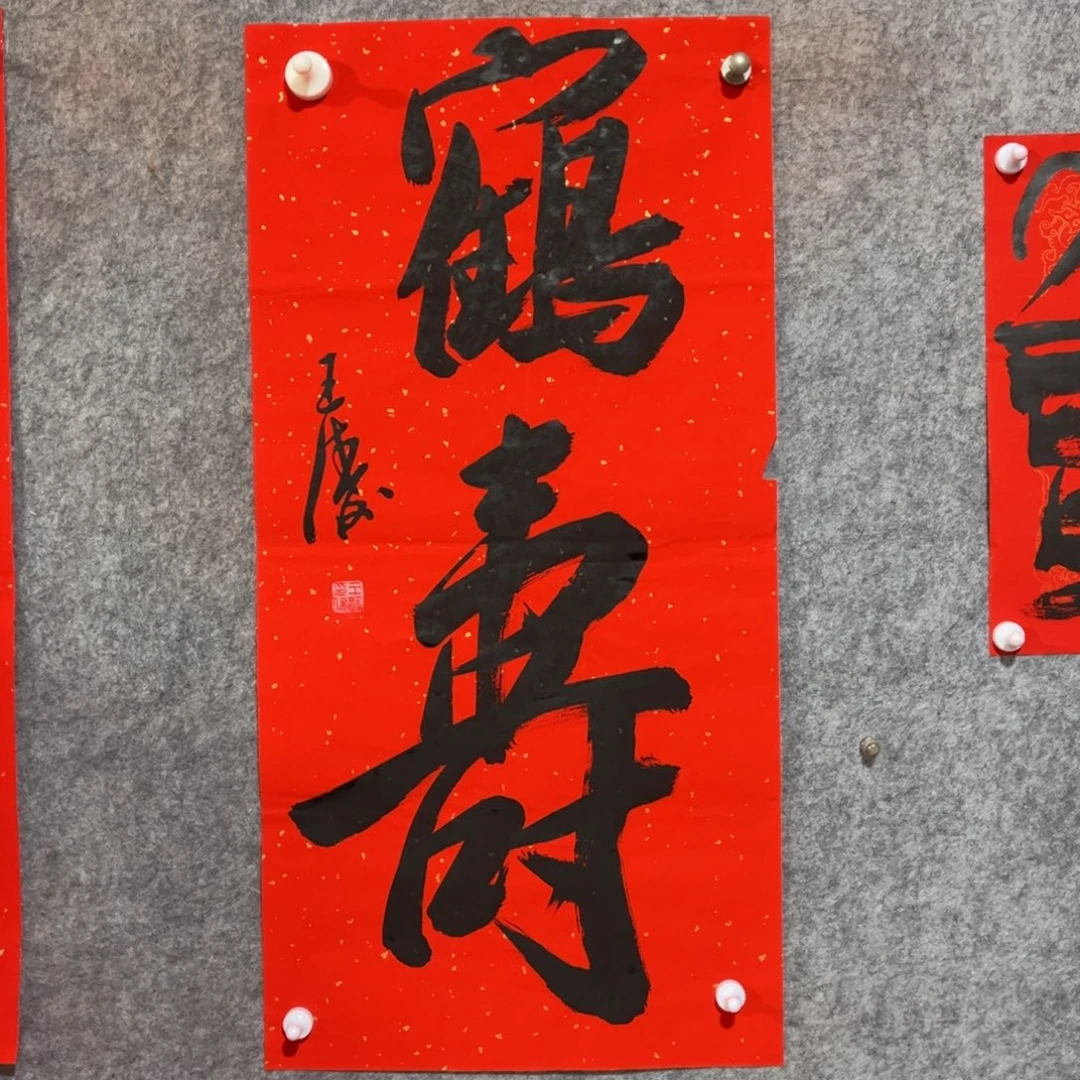 鶴壽
王慶